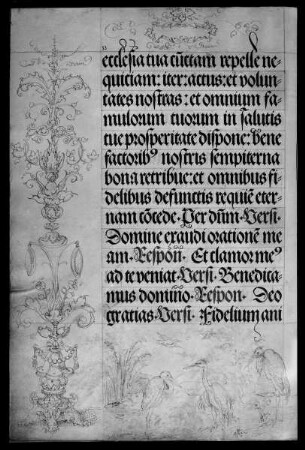 ecclesia tua cūctam repelle ne-
quiciam: iter: actus: et volun
tates nostras: et omnium fa-
mulorum tuorum in salutis
tue prosperitate dispone: bene
factoribꝰ nostris sempiterna
bona retribue: et omnibus fi-
delibus defunctis requiē eter-
nam cōcede· Per dn̄m· Versi·
Domine exaudi orationē me
am· Respon· Et clamor meꝰ
ad te veniat· Versi· Benedica-
mus domino· Respon· Deo
gratias· Versi· Fidelium ani